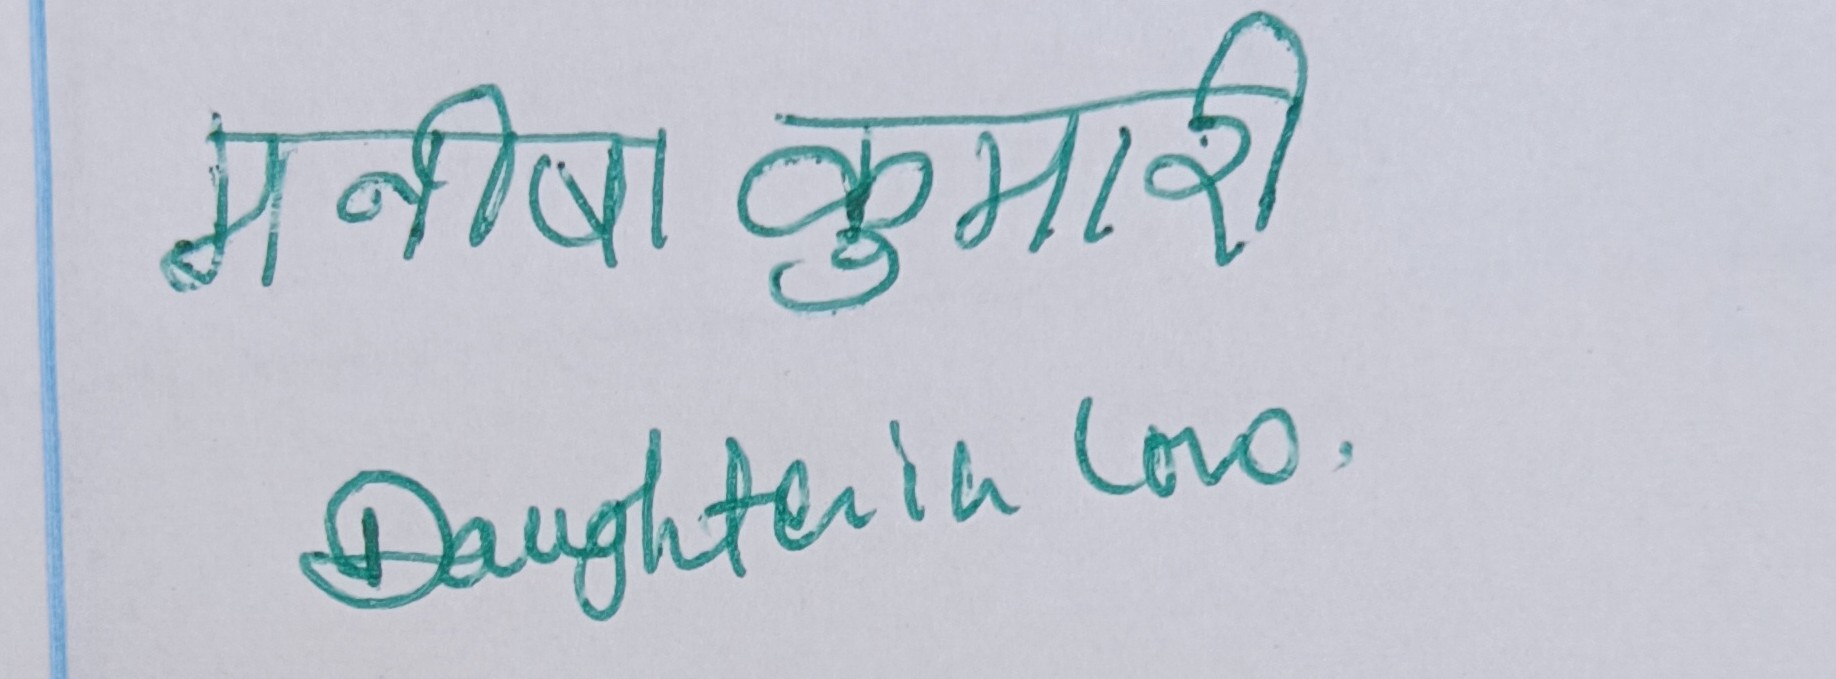 मनीषा कुमारी
Daughter in Low.